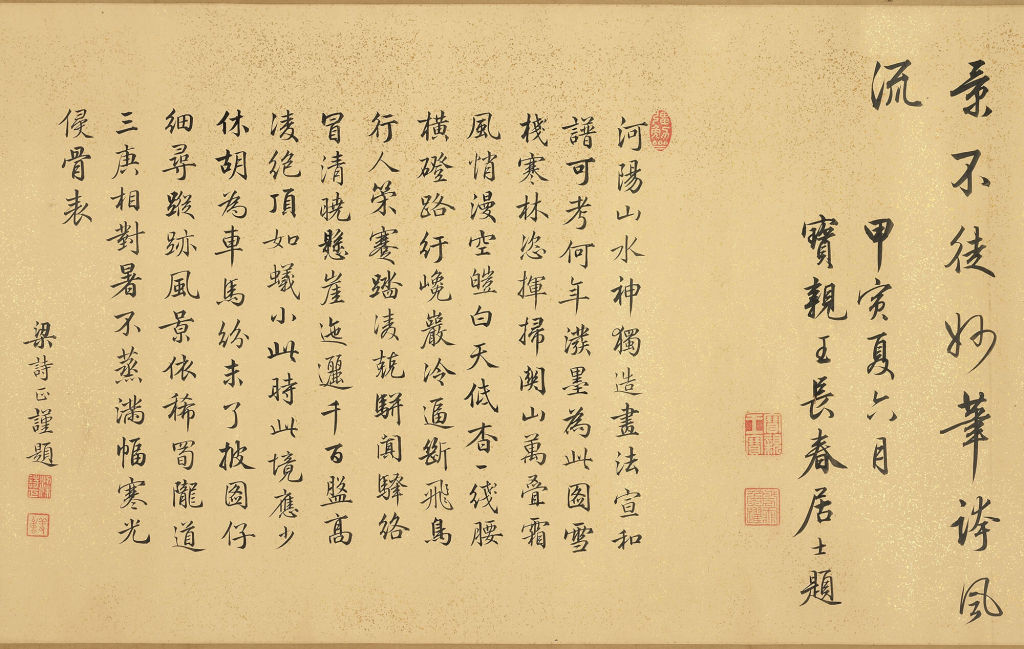 景不徒妙筆誇風
流
甲寅夏六月
寶親王長春居士題
河陽山水神獨造畫法宣和
譜可考何年潑墨為此圖雪
棧寒林恣揮掃関山萬疊霜
風悄漫空皚白天低杳一綫腰
橫磴路紆巉巖冷逼斷飛鳥
行人策蹇踏凌兢駢闐驛絡
冒清曉懸崖迤邐千百盤高
凌絕頂如蟻小此時此境應少
休胡為車馬紛未了披圖仔
細尋蹤跡風景依稀蜀隴道
三庚相對暑不蒸滿幅寒光
侵骨表
梁詩正謹題